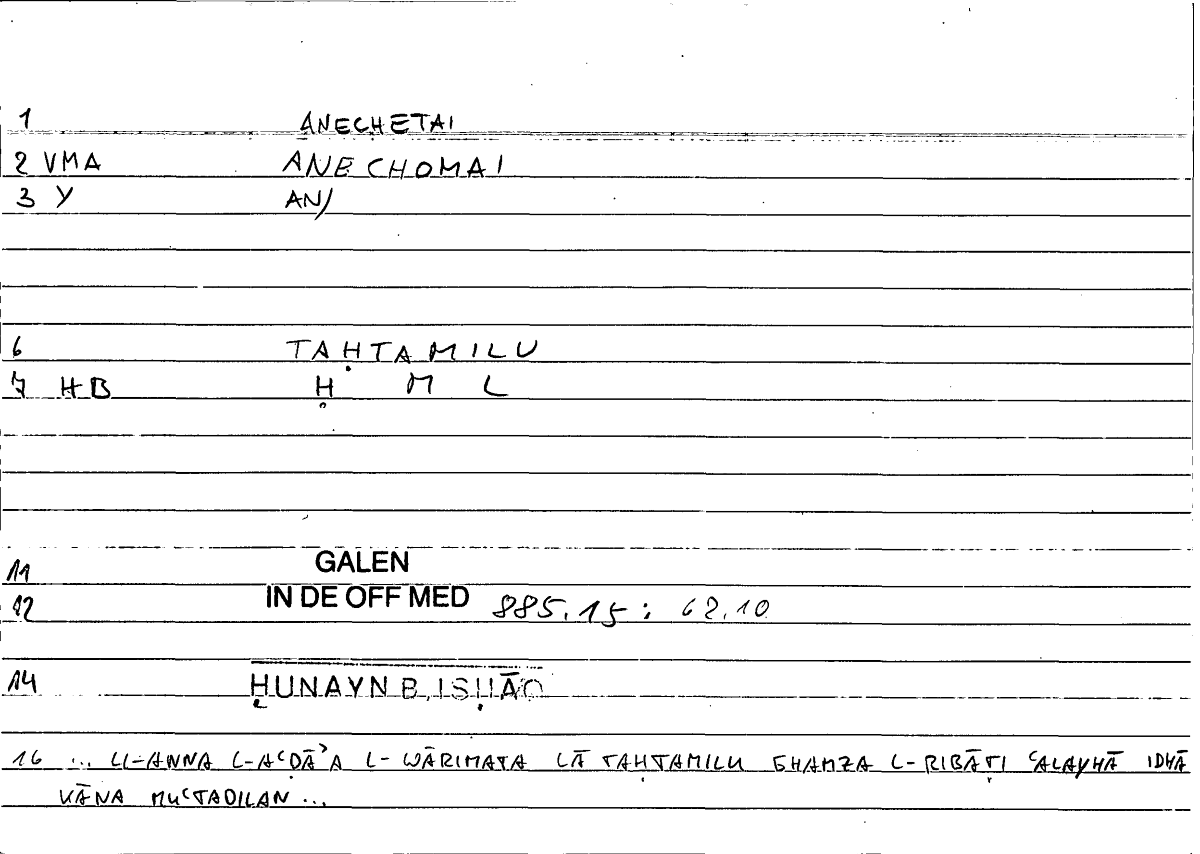 1 ANECHETAI
2 VMA ANECHOMAI
3 Y AN/
6 TAḤTAMILU
7 HB Ḥ M L
11 GALEN
12 IN DE OFF MED 885.15 : 62.10
14 ḤUNAYN B. ISḤĀQ
16 ... LI-ANNA L-AʿḌĀʾA L-WĀRIMATA LĀ TAḤTAMILU GHAMZA L-RIBĀṬI ʿALAYHĀ IDHĀ
KĀNA MUʿTADILAN ...